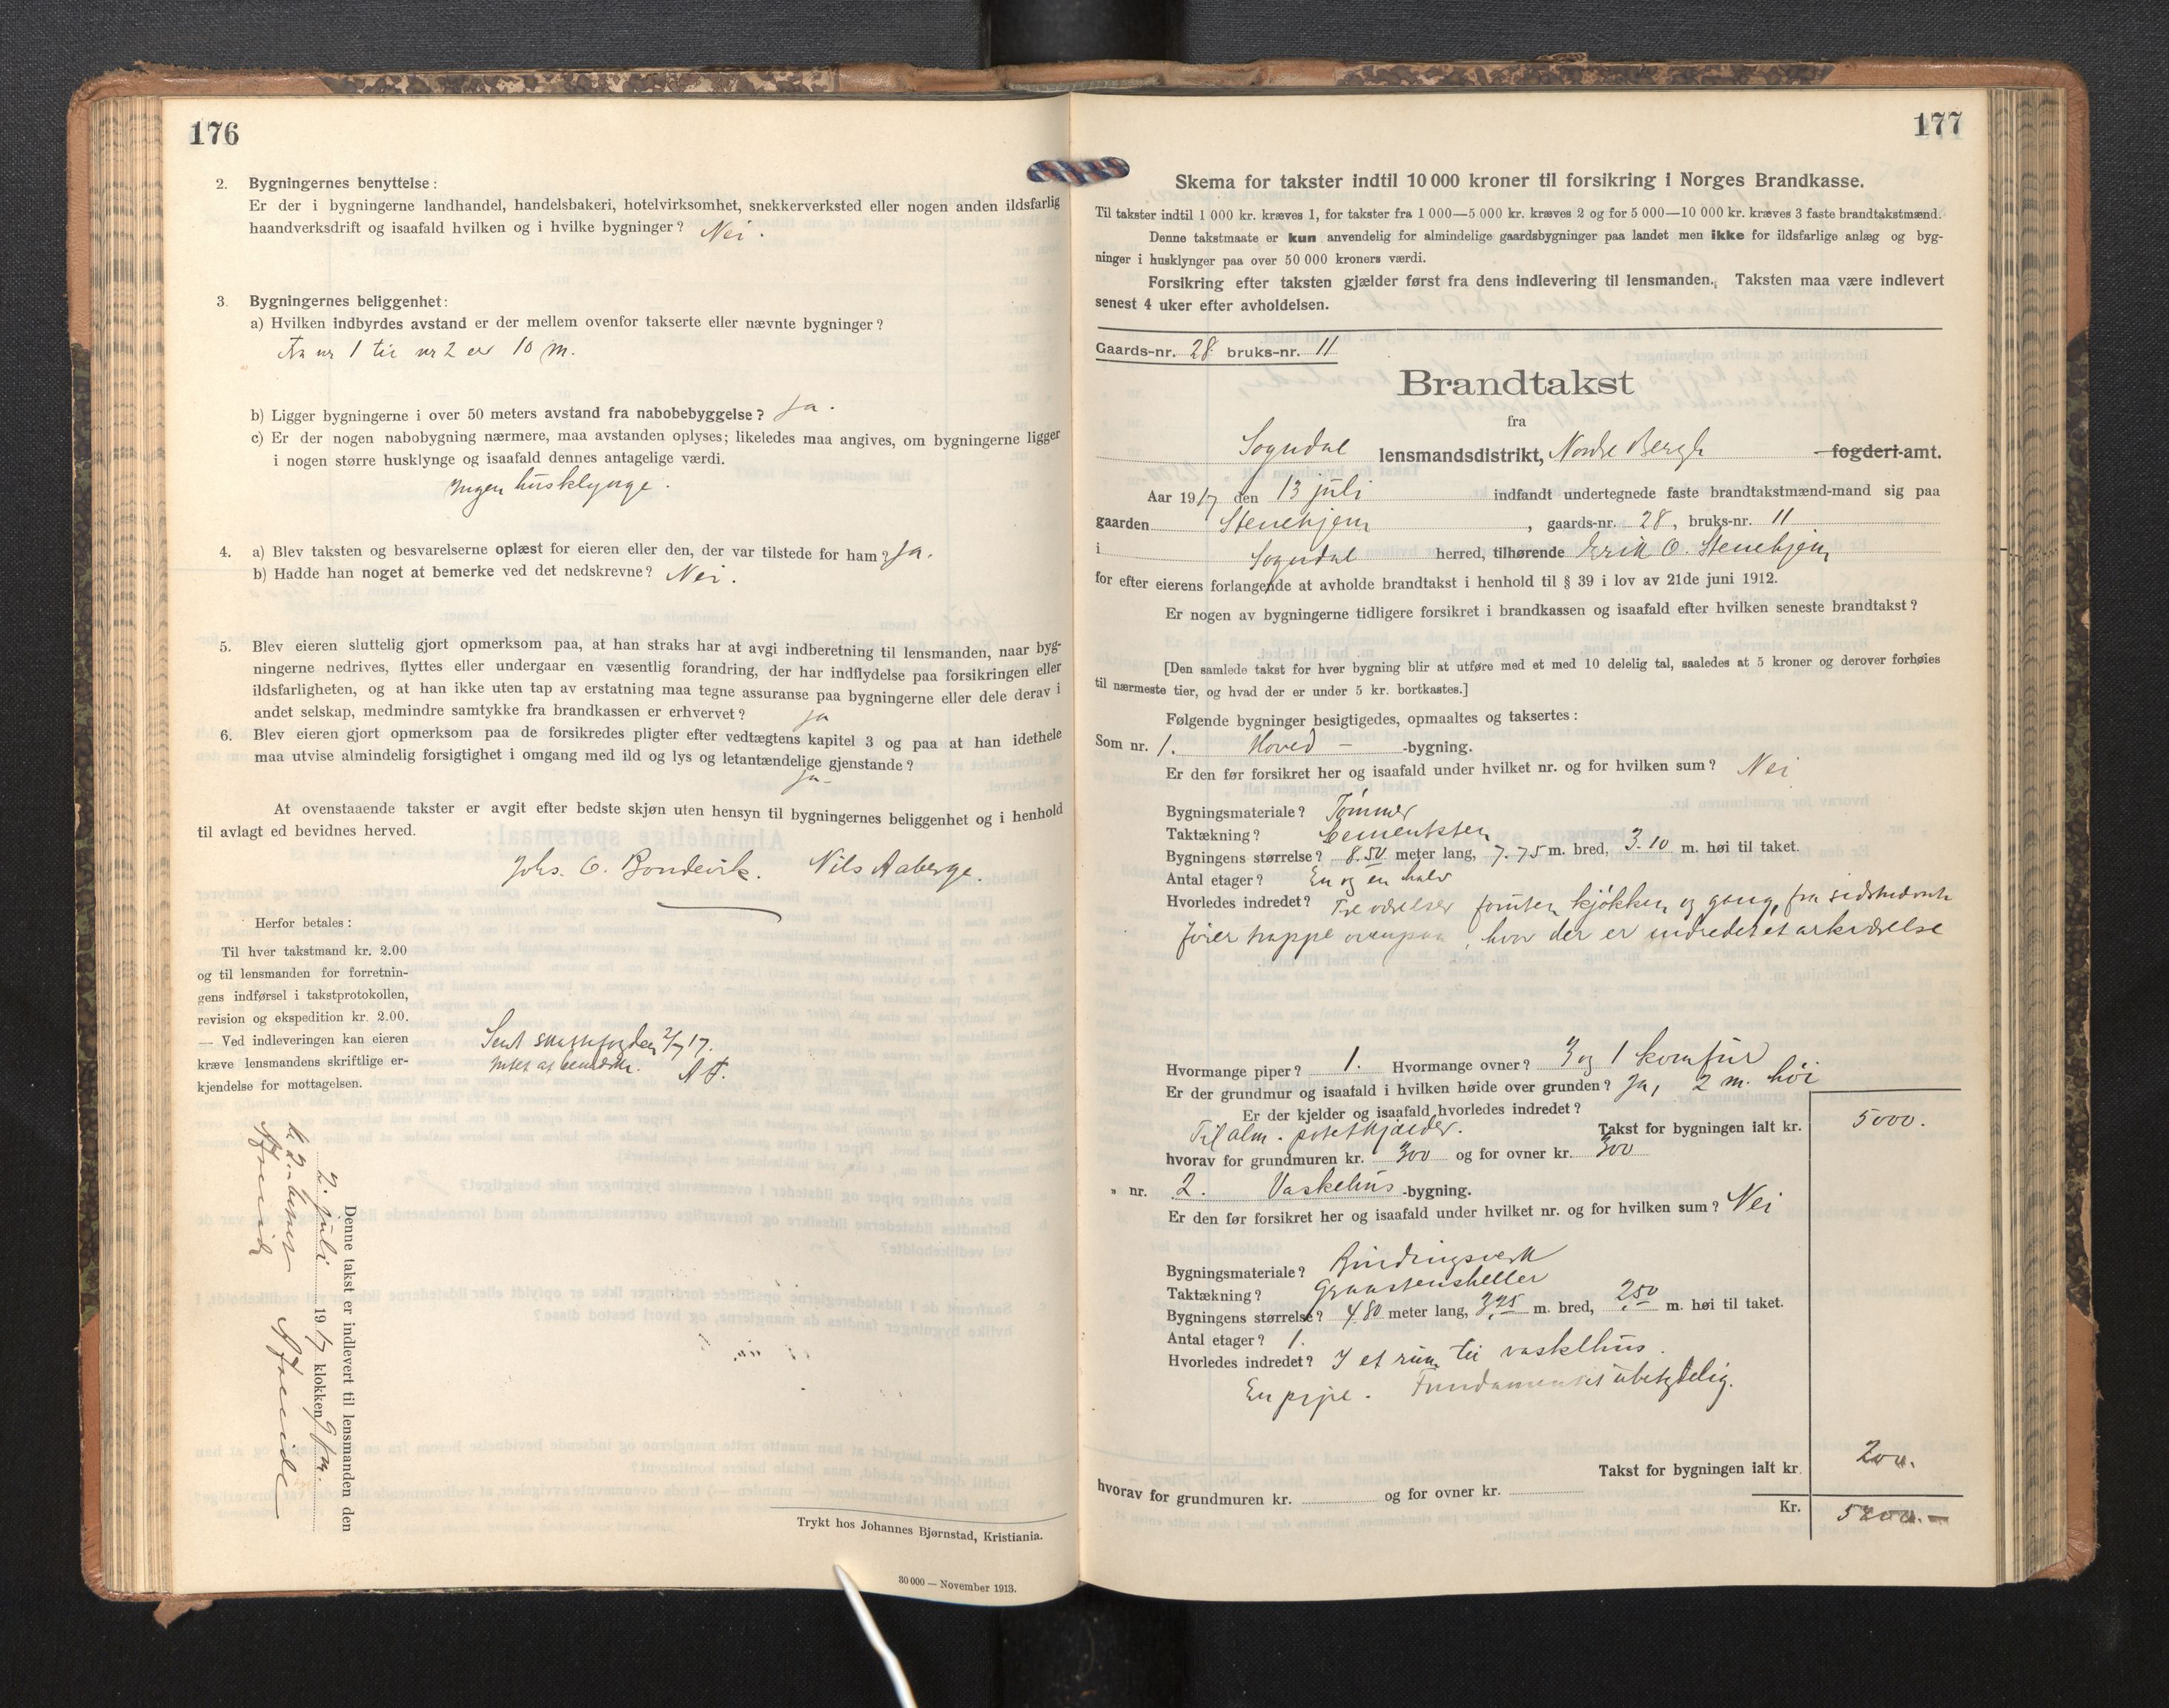 176
2. Bygningernes benyttelse:
Er der i bygningerne landhandel, handelsbakeri, hotelvirksomhet, snekkerverksted eller nogen anden ildsfarlig
haandverksdrift og isaafald hvilken og i hvilke bygninger? Nei.
3. Bygningernes beliggenhet:
a) Hvilken indbyrdes avstand er der mellem ovenfor takserte eller nævnte bygninger?
Fra nr 1 til nr 2 er 10 m.
b) Ligger bygningerne i over 50 meters avstand fra nabobebyggelse? Ja.
c) Er der nogen nabobygning nærmere, maa avstanden oplyses; likeledes maa angives, om bygningerne ligger
i nogen større husklynge og isaafald dennes antagelige værdi.
Ingen husklynge.
4. a) Blev taksten og besvarelserne oplæst for eieren eller den, der var tilstede for ham? Ja.
b) Hadde han noget at bemerke ved det nedskrevne? Nei.
5. Blev eieren sluttelig gjort opmerksom paa, at han straks har at avgi indberetning til lensmanden, naar byg-
ningerne nedrives, flyttes eller undergaar en væsentlig forandring, der har indflydelse paa forsikringen eller
ildsfarligheten, og at han ikke uten tap av erstatning maa tegne assuranse paa bygningerne eller dele derav i
andet selskap, medmindre samtykke fra brandkassen er erhvervet? ja
6. Blev eieren gjort opmerksom paa de forsikredes pligter efter vedtægtens kapitel 3 og paa at han idethele
maa utvise almindelig forsigtighet i omgang med ild og lys og letantændelige gjenstande?
ja
At ovenstaaende takster er avgit efter bedste skjøn uten hensyn til bygningernes beliggenhet og i henhold
til avlagt ed bevidnes herved.
Johs. O. Bondevik. Nils Aaberge.
Herfor betales:
Til hver takstmand kr. 2.00
og til lensmanden for forretnin-
gens indførsel i takstprotokollen,
revision og ekspedition kr. 2.00.
— Ved indleveringen kan eieren
kræve lensmandens skriftlige er-
kjendelse for mottagelsen.
Sent sorenfogden 2/7 17.
Intet at bemerke.
Denne takst er indlevert til lensmanden den
2. juli 1917 klokken 9 fm.
Trykt hos Johannes Bjørnstad, Kristiania.
30 000 — November 1913.
177
Skema for takster indtil 10 000 kroner til forsikring i Norges Brandkasse.
Til takster indtil 1 000 kr. kræves 1, for takster fra 1 000—5 000 kr. kræves 2 og for 5 000—10 000 kr. kræves 3 faste brandtakstmænd.
Denne takstmaate er kun anvendelig for almindelige gaardsbygninger paa landet men ikke for ildsfarlige anlæg og byg-
ninger i husklynger paa over 50 000 kroners værdi.
Forsikring efter taksten gjælder først fra dens indlevering til lensmanden. Taksten maa være indlevert
senest 4 uker efter avholdelsen.
Gaards-nr. 28 bruks-nr. 11
Brandtakst
fra
Sogndal lensmandsdistrikt, Nordre Bergh fogderi-amt.
Aar 1917 den 13 juli indfandt undertegnede faste brandtakstmænd-mand sig paa
gaarden Stenehjem, gaards-nr. 28, bruks-nr. 11
i Sogndal herred, tilhørende Erik O. Stenehjem
for efter eierens forlangende at avholde brandtakst i henhold til § 39 i lov av 21de juni 1912.
Er nogen av bygningerne tidligere forsikret i brandkassen og isaafald efter hvilken seneste brandtakst?
[Den samlede takst for hver bygning blir at utføre med et med 10 delelig tal, saaledes at 5 kroner og derover forhøies
til nærmeste tier, og hvad der er under 5 kr. bortkastes.]
Følgende bygninger besigtigedes, opmaaltes og taksertes:
Som nr. 1. Hoved - -bygning.
Er den før forsikret her og isaafald under hvilket nr. og for hvilken sum? Nei
Bygningsmateriale? Tømmer
Taktækning? Cementsten
Bygningens størrelse? 8.50 meter lang, 7.75 m. bred, 3.10 m. høi til taket.
Antal etager? En og en halv
Hvorledes indredet? Tre værelser foruten kjøkken og gang, fra sidstnævnte
fører trappe ovenpaa, hvor der er indredet et arkværelse
Hvormange piper? 1. Hvormange ovner? 3 og 1 komfur
Er der grundmur og isaafald i hvilken høide over grunden? Ja, 2 m. høi
Er der kjelder og isaafald hvorledes indredet?
Til alm. potetkjælder. Takst for bygningen ialt kr. 5000.
hvorav for grundmuren kr. 300 og for ovner kr. 300
" nr. 2. Vaskehus -bygning.
Er den før forsikret her og isaafald under hvilket nr. og for hvilken sum? Nei
Bygningsmateriale? Bindingsverk
Taktækning? Graastensheller
Bygningens størrelse? 4.80 meter lang, 3.25 m. bred, 2.50 m. høi til taket.
Antal etager? 1.
Hvorledes indredet? I et rum til vaskehus.
En pipe. Fundamentet ubetydelig.
Takst for bygningen ialt kr. 200.
hvorav for grundmuren kr. og for ovner kr.
Kr. 5200.-